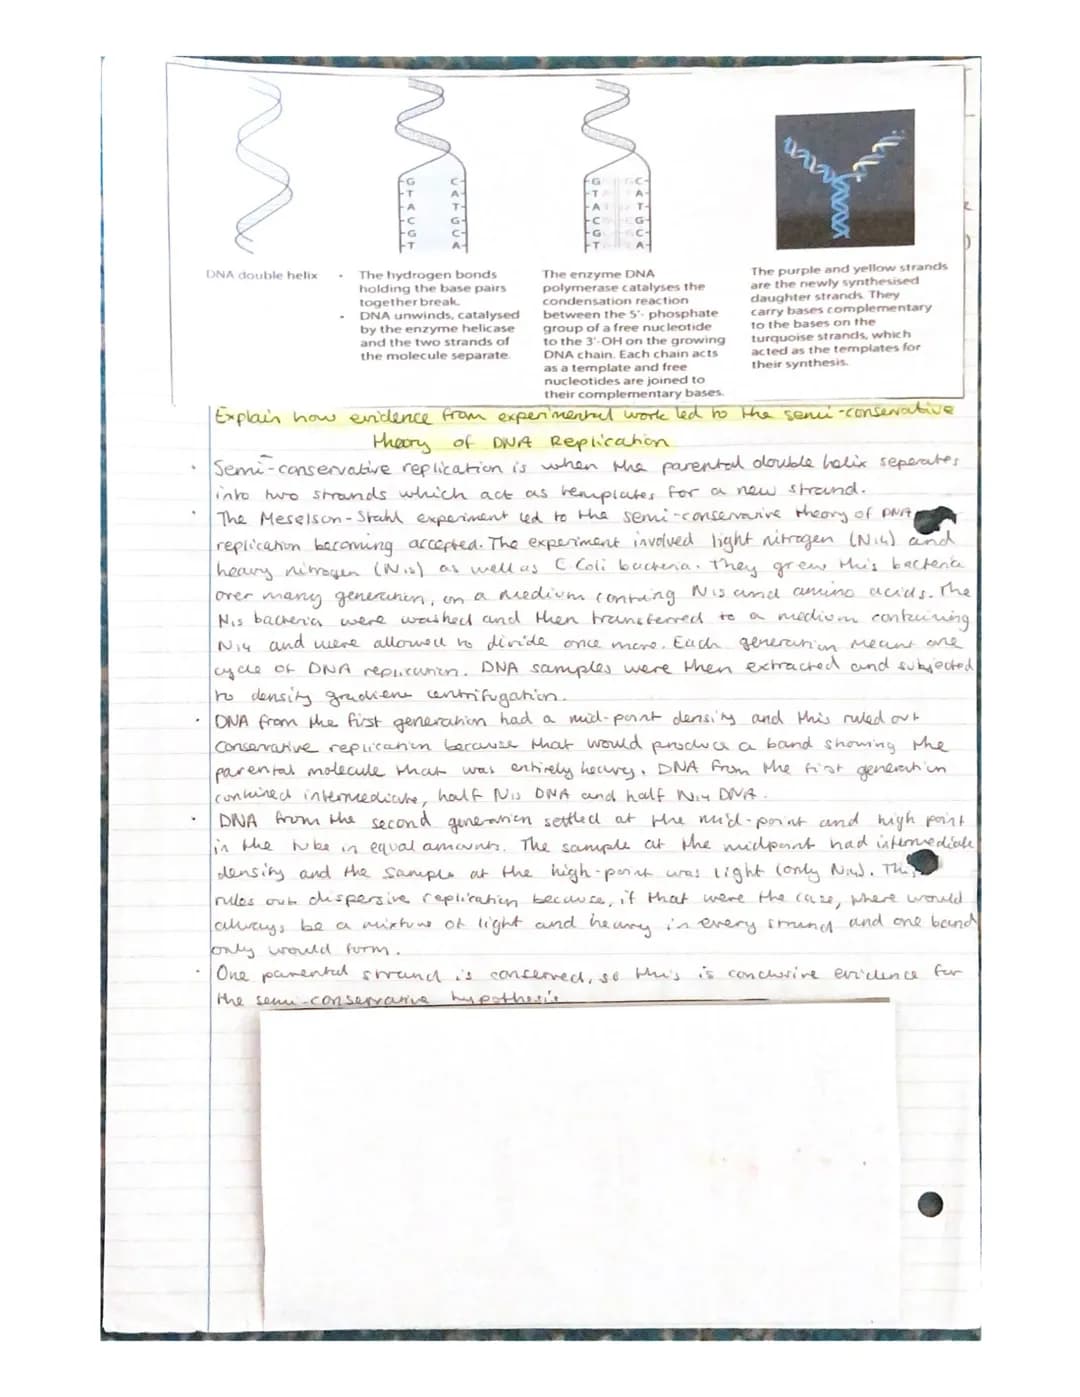 G C
T A
A T
C G
G C
T A
G G C
T A
A T
C G
G C
T A
DNA double helix
• The hydrogen bonds
holding the base pairs
together break.
• DNA unwinds, catalysed
by the enzyme helicase
and the two strands of
the molecule separate.
The enzyme DNA
polymerase catalyses the
condensation reaction
between the 5'- phosphate
group of a free nucleotide
to the 3'-OH on the growing
DNA chain. Each chain acts
as a template and free
nucleotides are joined to
their complementary bases.
The purple and yellow strands
are the newly synthesised
daughter strands. They
carry bases complementary
to the bases on the
turquoise strands, which
acted as the templates for
their synthesis.
Explain how evidence from experimental work led to the semi-conservative
theory of DNA Replication
• Semi-conservative replication is when the parental double helix seperates
into two strands which act as templates for a new strand.
• The Meselson-Stahl experiment led to the semi-conservative theory of DNA
replication becoming accepted. The experiment involved light nitrogen (N14) and
heavy nitrogen (N15) as well as E Coli bacteria. They grew this bacteria
over many generation, on a medium containg N15 and amino acids. The
N15 bacteria were washed and then transferred to a medium containing
N14 and were allowed to divide once more. Each generation meant one
cycle of DNA replication. DNA samples were then extracted and subjected
to density gradient centrifugation.
• DNA from the first generation had a mid-point density and this ruled out
conservative replication because that would produce a band showing the
parental molecule that was entirely heavy. DNA from the first generation
contained intermediate, half N15 DNA and half N14 DNA.
• DNA from the second generation settled at the mid-point and high point
in the tube in equal amounts. The sample at the midpoint had intermediate
density and the sample at the high-point was light (only N14). This
rules out dispersive replication because, if that were the case, there would
always be a mixture of light and heavy in every strand and one band
only would form.
• One parental strand is conserved, so this is conclusive evidence for
the semi-conservative hypothesis